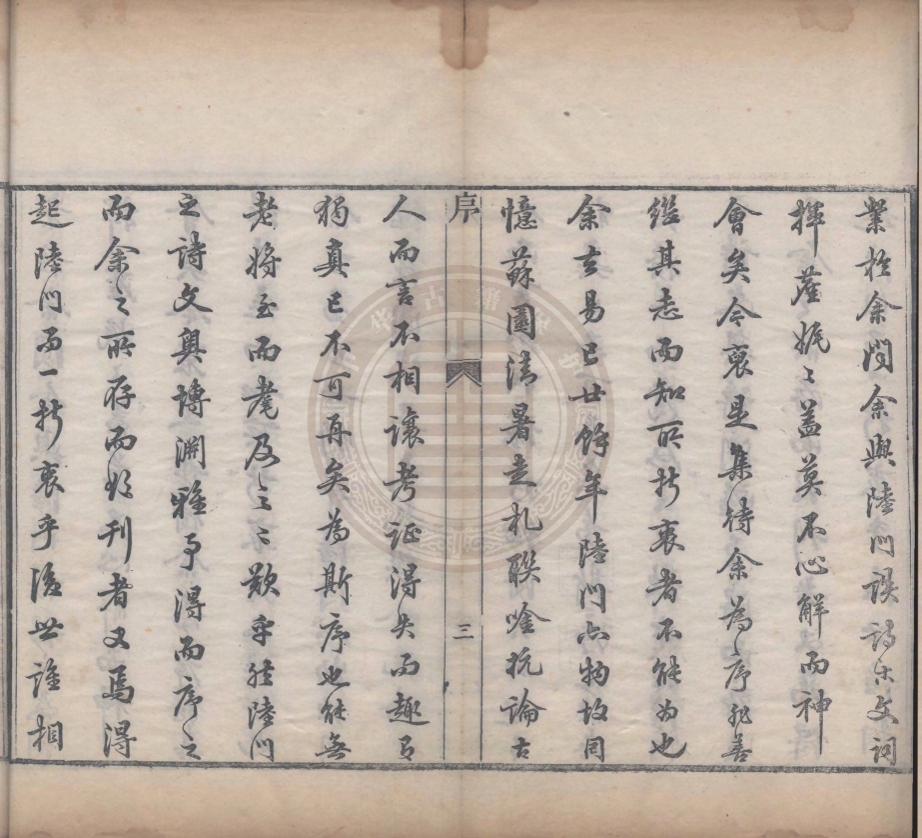 業於余問余與陸門談詩古文詞
揮麈娓〻蓋莫不心解而神
會矣今裒是集待余為序非善
繼其志而知所折衷者不能為也
余去易已廿餘年陸門亦物故同
憶蘇園清暑走札聯唫抗論古
序
三
人而言不相讓考証得失而趣自
獨真已不可再矣為斯序也能無
老將至而耄及之之歎乎然陸門
之詩文奧博淵雅予得而序之
而余之所存而好刊者又焉得
起陸門而一折衷乎後世誰相